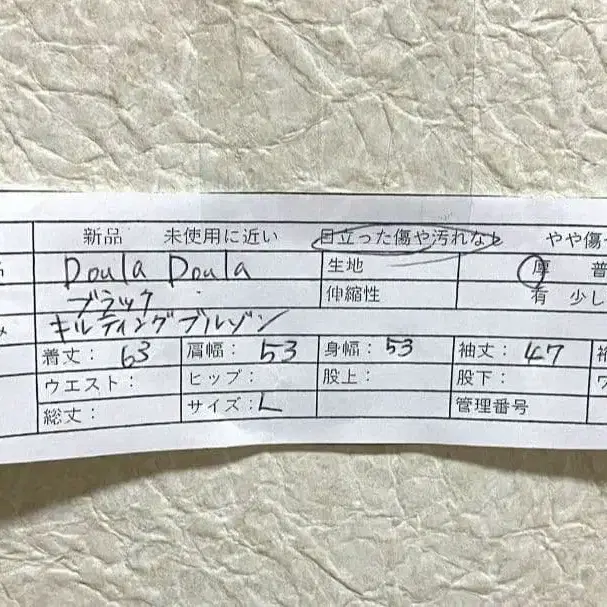 新品 未使用に近い 目立った傷や汚れなし やや傷
Doula Doula 生地 厚 普
ブラック 伸縮性 有 少し
キルティングブルゾン
着丈: 63 肩幅: 53 身幅: 53 袖丈: 47 裄
ウエスト: ヒップ: 股上: 股下: ワ
総丈: サイズ: L 管理番号